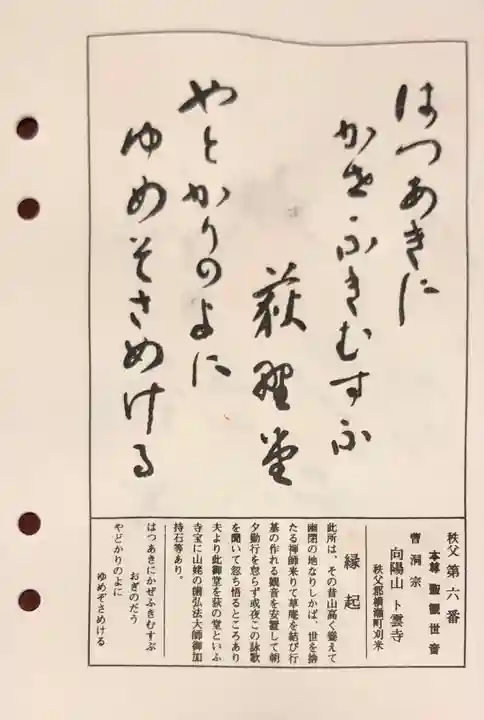 はつあきに
かぜふきむすふ
荻野堂
やとかりのよに
ゆめそさめける
秩父第六番
本尊 聖観世音
曹洞宗
向陽山 卜雲寺
秩父郡横瀬町刈米
縁起
此所は、その昔山高く聳えて
幽閉の地なりしかば、世を捨
たる禅師来りて草庵を結び行
基の作れる観音を安置して朝
夕勤行を怠らず或夜この詠歌
を聞いて忽ち悟るところあり
夫より此御堂を荻の堂といふ
寺宝に山姥の歯弘法大師御加
持石等あり。
はつあきにかぜふきむすぶ
おぎのだう
やどかりのよに
ゆめぞさめける